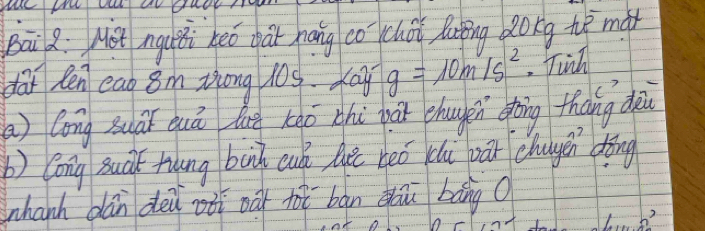 Bài 2: Một người kéo vật nặng có khối lượng 20kg từ mặt
đất lên cao 8m trong 10s. Lấy g = 10m/s². Tính
a) Công suất của lực kéo khi vật chuyển động thẳng đều
b) Công suất trung bình của lực kéo khi vật chuyển động
nhanh dần đều với vận tốc ban đầu bằng 0